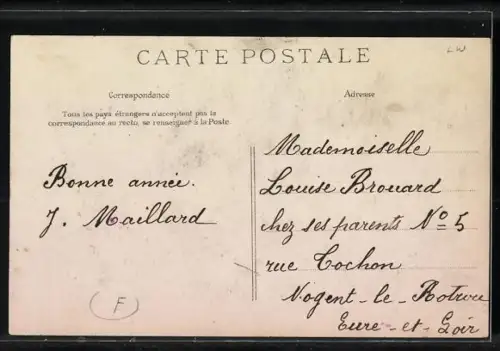 CARTE POSTALE
LW
Correspondance
Adresse
Tous les pays étrangers n'acceptent pas la
correspondance au recto, se renseigner à la Poste.
Bonne année.
J. Maillard
F
Mademoiselle
Louise Brouard
chez ses parents Nº 5
rue Cochon
Nogent-le-Rotrou
Eure-et-Loir